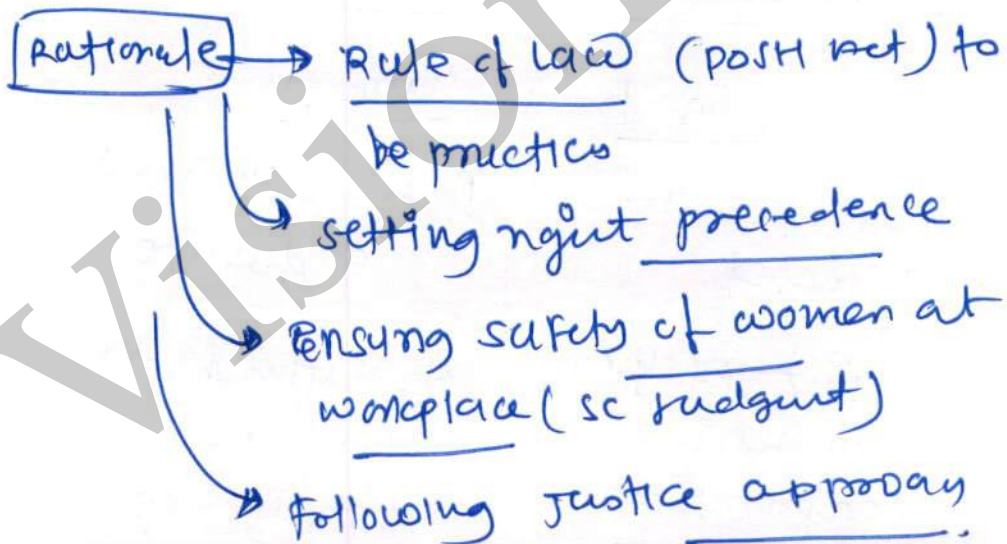 Rationale → Rule of Law (POSH Act) to
be practics
setting right precedence
Ensuring safety of women at
workplace (SC judgment)
Following Justice approach.
Vision